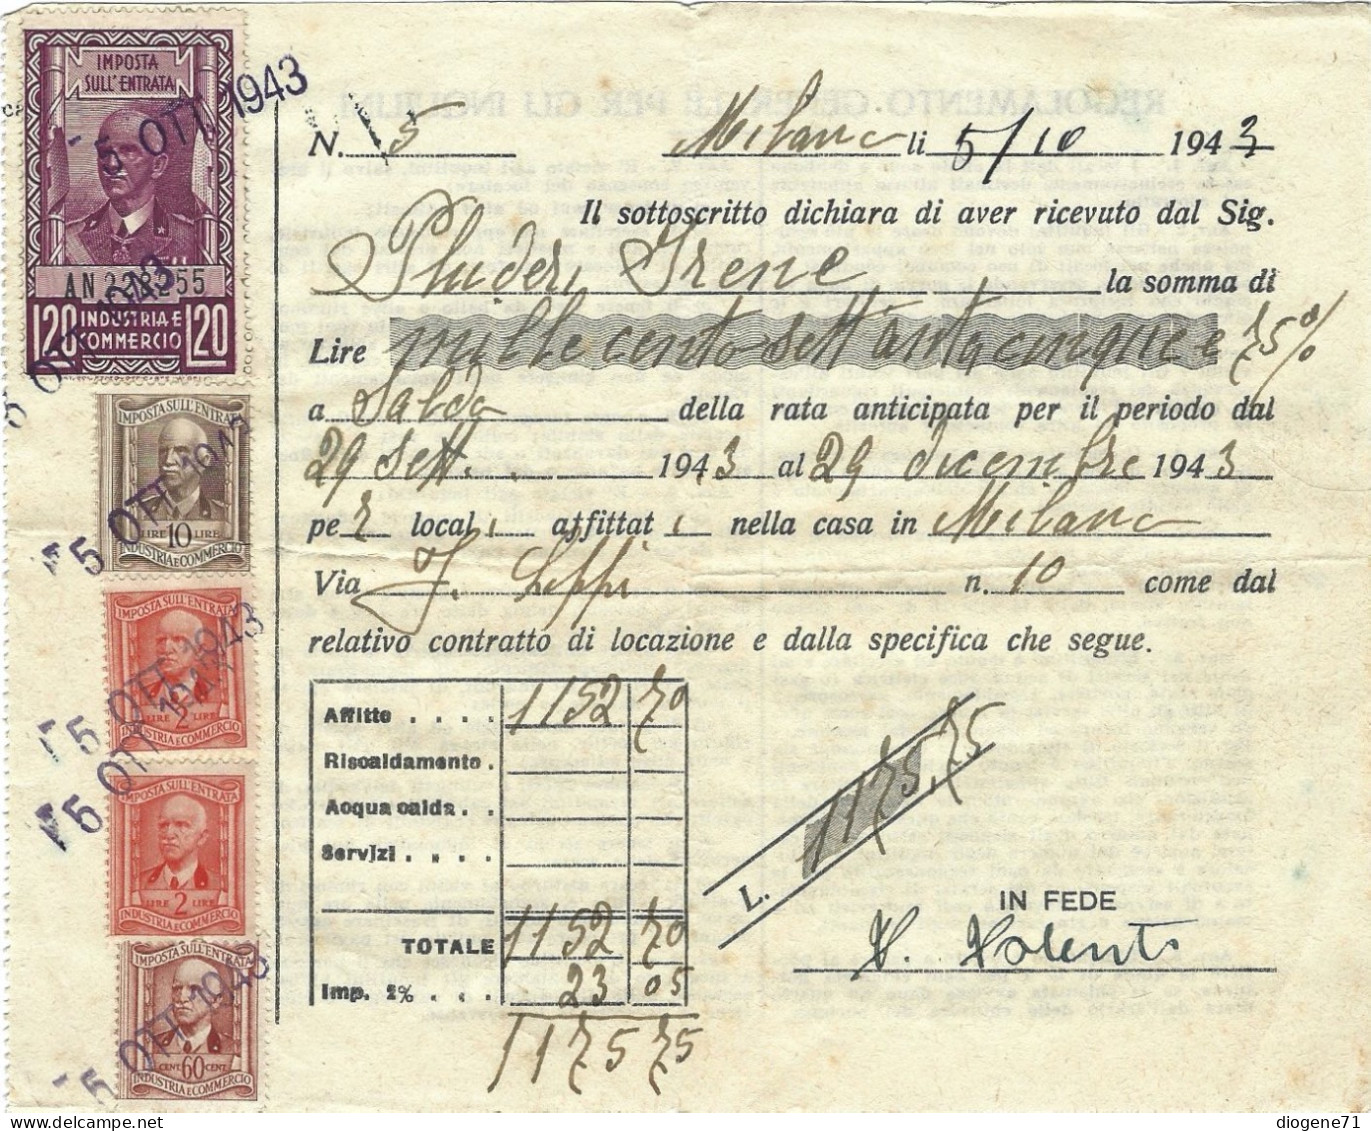 IMPOSTA
SULL'ENTRATA
- 5 OTT. 1943
AN 228255
120 INDUSTRIA E COMMERCIO 120
5 OTT. 1943
IMPOSTA SULL'ENTRATA
LIRE 10 LIRE
INDUSTRIA E COMMERCIO
5 OTT. 1943
IMPOSTA SULL'ENTRATA
LIRE 2 LIRE
INDUSTRIA E COMMERCIO
5 OTT. 1943
IMPOSTA SULL'ENTRATA
LIRE 2 LIRE
INDUSTRIA E COMMERCIO
5 OTT. 1943
IMPOSTA SULL'ENTRATA
CENT. 60 CENT.
INDUSTRIA E COMMERCIO
5 OTT. 1943
REGOLAMENTO GENERALE PER GLI INQUILINI
N. 5 Milano li 5/10 1943
Il sottoscritto dichiara di aver ricevuto dal Sig.
Irene la somma di
Lire mille cento settantacinque e 75%
a Saldo della rata anticipata per il periodo dal
29 Sett. 1943 al 29 dicembre 1943
pe r 2 local i affittat i nella casa in Milano
Via n. 10 come dal
relativo contratto di locazione e dalla specifica che segue.
Affitto . . . . 1152 70
Riscaldamento .
Acqua calda . .
Servizi . . . .
TOTALE 1152 70
Imp. 2% . . . 23 05
1175 75
L. 1175,75
IN FEDE
diogene71